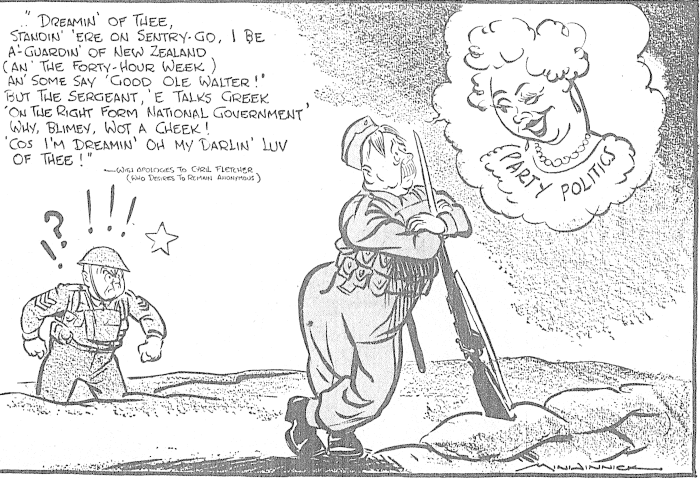 .." DREAMIN' OF THEE,
STANDIN' 'ERE ON SENTRY-GO, I BE
A-GUARDIN' OF NEW ZEALAND
(AN' THE FORTY-HOUR WEEK)
AN' SOME SAY 'GOOD OLE WALTER!'
BUT THE SERGEANT, 'E TALKS GREEK
'ON THE RIGHT FORM NATIONAL GOVERNMENT'
WHY, BLIMEY, WOT A CHEEK!
'COS I'M DREAMIN' OH MY DARLIN' LUV
OF THEE!"
—WITH APOLOGIES TO CYRIL FLETCHER
(WHO DESIRES TO REMAIN ANONYMOUS)
PARTY POLITICS
? ! ! ! !
MINHINNICK